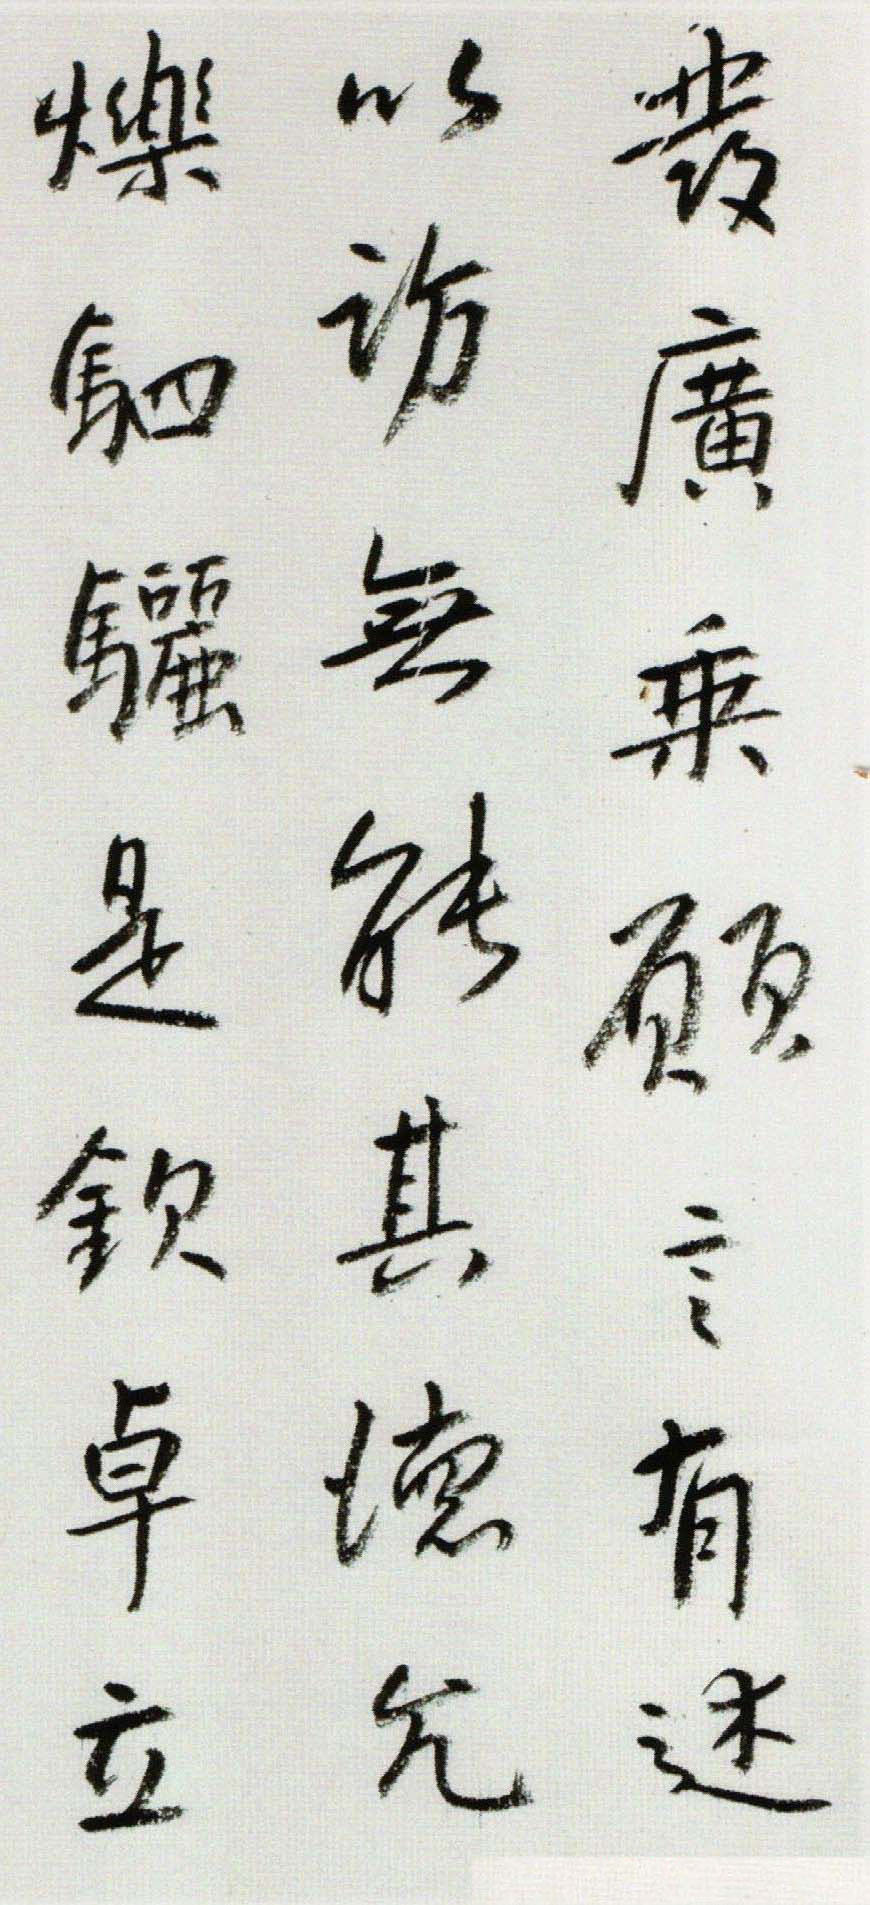 發廣乘願言有述
以訪無能其德允
爍駟驪是欽卓立